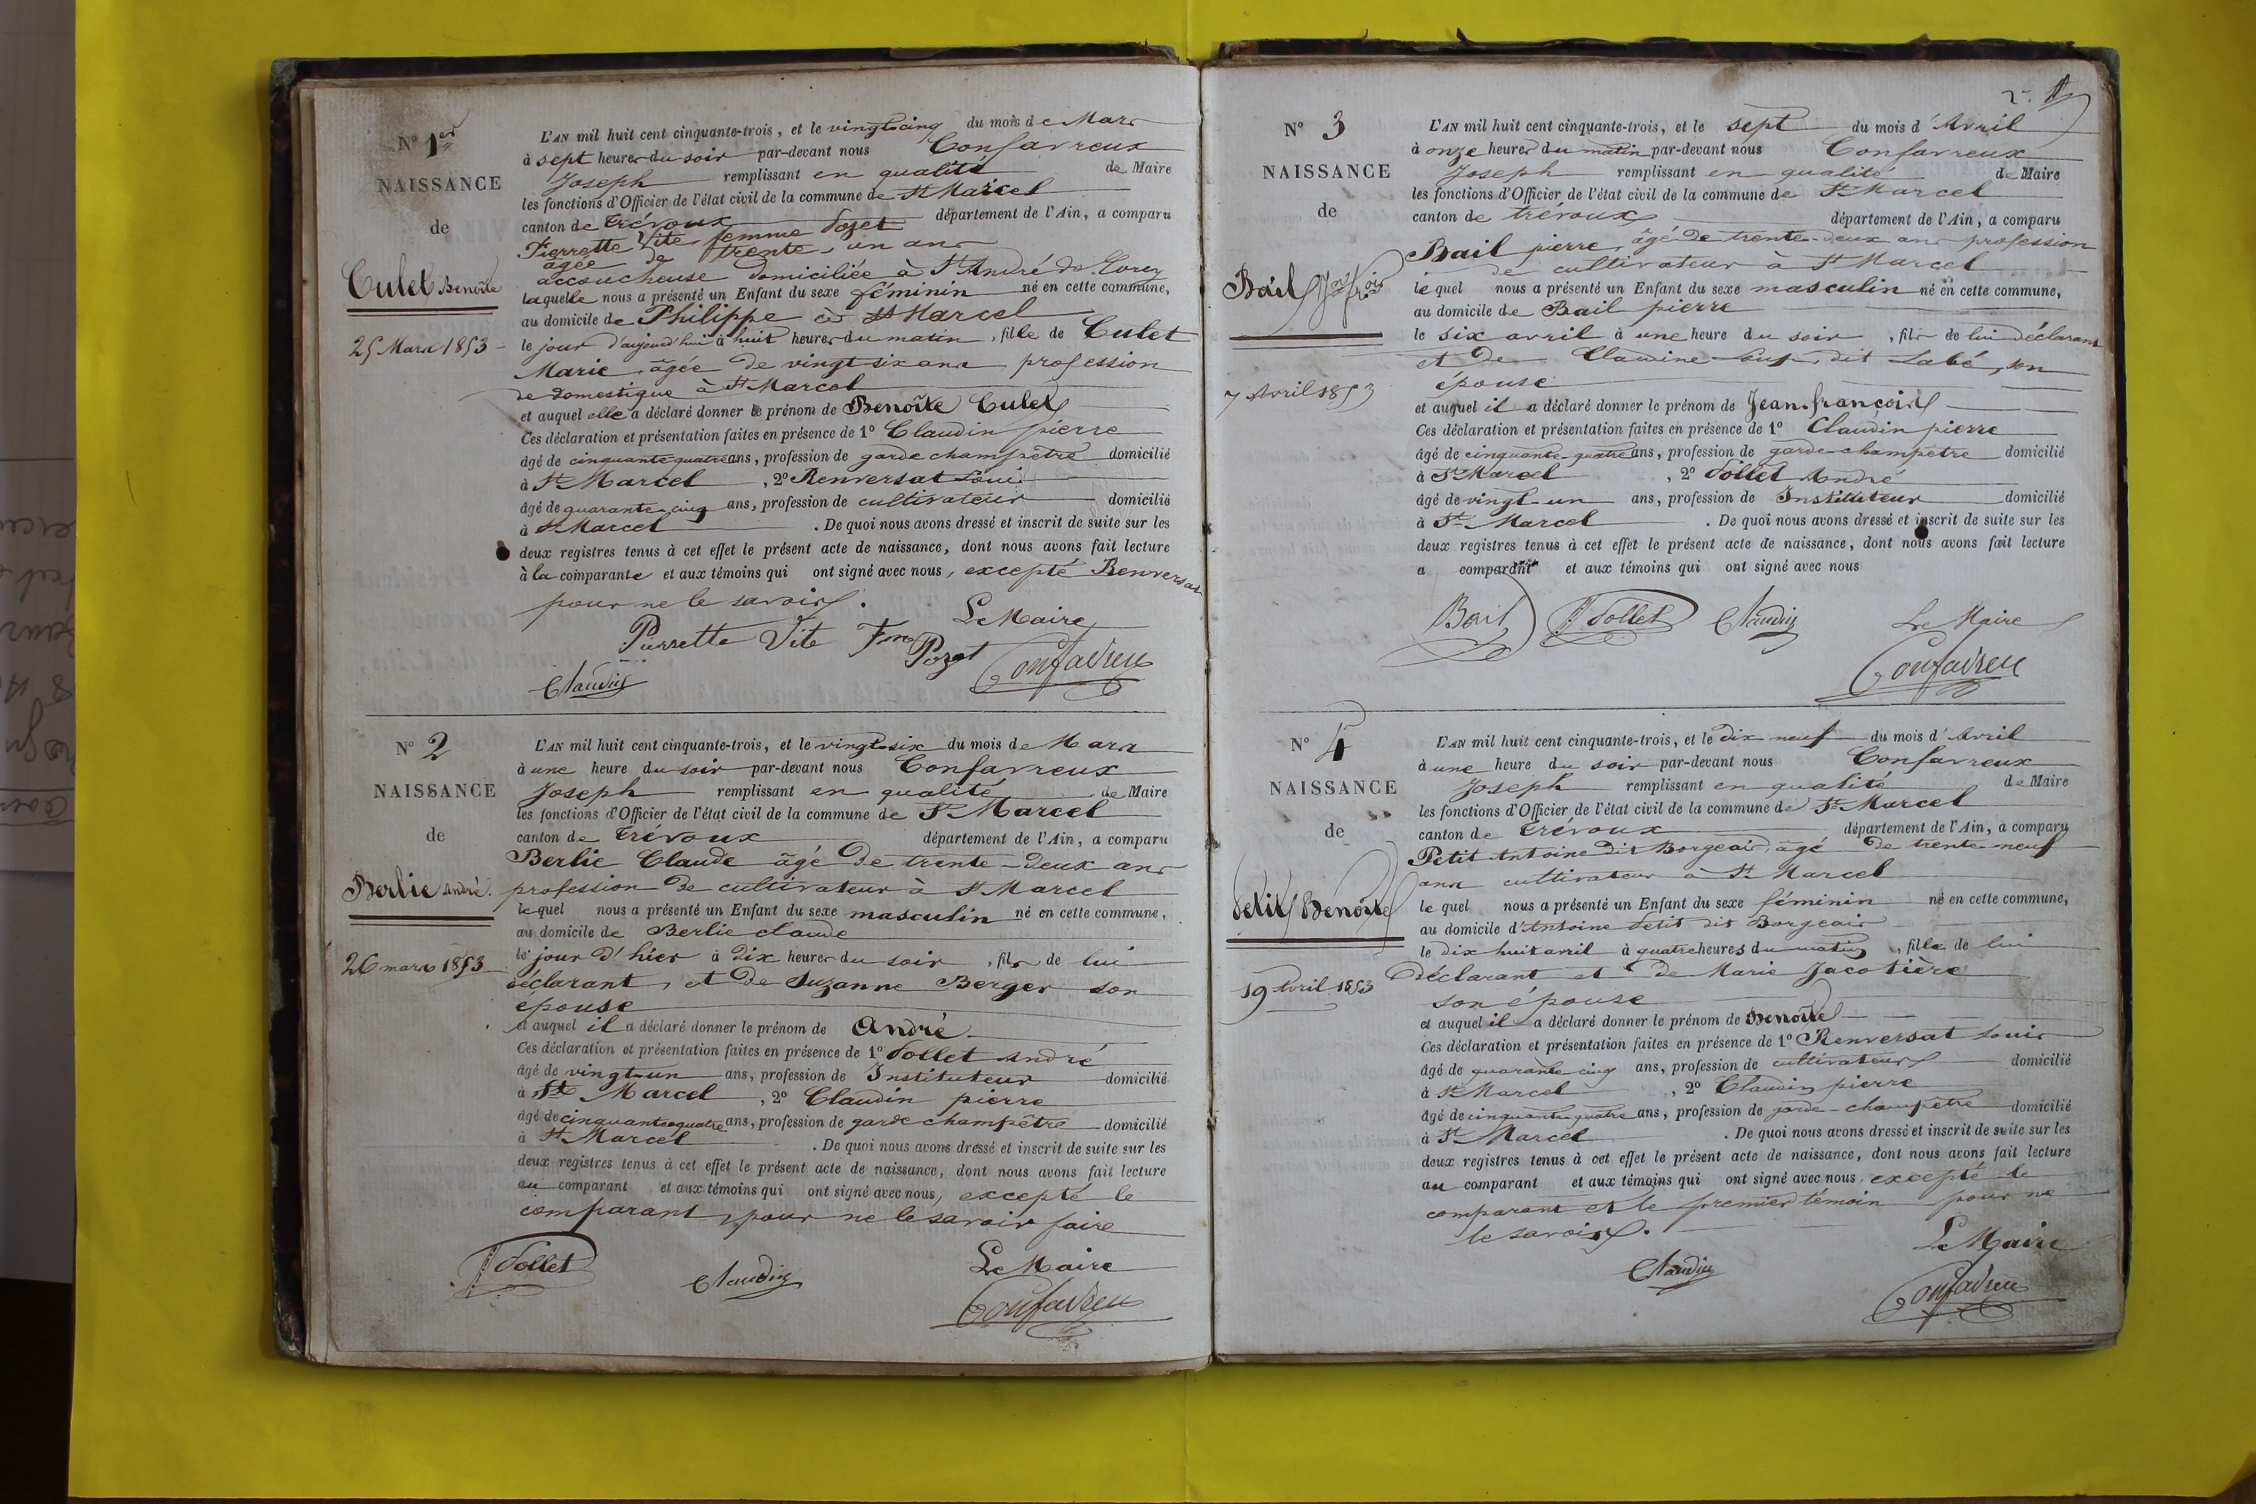 N° 1er
NAISSANCE
de
Culet Benoîte
25 Mars 1853
L'AN mil huit cent cinquante-trois, et le vingt-cinq du mois de Mars
à sept heures du soir par-devant nous Confavreux
Joseph remplissant en qualité de Maire
les fonctions d'Officier de l'état civil de la commune de St Marcel
canton de Trévoux département de l'Ain, a comparu
Pierrette Vite femme Pozet
âgée de trente-un ans
accoucheuse domiciliée à St André de Corcy
laquelle nous a présenté un Enfant du sexe féminin né en cette commune,
au domicile de Philippe à St Marcel
le jour d'aujourd'hui à huit heures du matin, fille de Culet
Marie, âgée de vingt six ans profession
de domestique à St Marcel
et auquel elle a déclaré donner le prénom de Benoîte Culet
Ces déclaration et présentation faites en présence de 1° Claudin pierre
âgé de cinquante-quatre ans, profession de garde champêtre domicilié
à St Marcel, 2° Renversat Louis
âgé de quarante-cinq ans, profession de cultivateur domicilié
à St Marcel. De quoi nous avons dressé et inscrit de suite sur les
deux registres tenus à cet effet le présent acte de naissance, dont nous avons fait lecture
à la comparante et aux témoins qui ont signé avec nous, excepté Renversat
pour ne le savoir.
Le Maire
Pierrette Vite Fme Pozet
Claudin Confavreu
N° 2
NAISSANCE
de
Berlie André.
26 mars 1853
L'AN mil huit cent cinquante-trois, et le vingt-six du mois de Mars
à une heure du soir par-devant nous Confavreux
Joseph remplissant en qualité de Maire
les fonctions d'Officier de l'état civil de la commune de St Marcel
canton de Trévoux département de l'Ain, a comparu
Berlie Claude âgé de trente-deux ans
profession de cultivateur à St Marcel
lequel nous a présenté un Enfant du sexe masculin né en cette commune,
au domicile de Berlie claude
le jour d'hier à dix heures du soir, fils de lui
déclarant, et de Suzanne Berger son
épouse
et auquel il a déclaré donner le prénom de André
Ces déclaration et présentation faites en présence de 1° Follet André
âgé de vingt-un ans, profession de Instituteur domicilié
à St Marcel, 2° Claudin pierre
âgé de cinquante-quatre ans, profession de garde champêtre domicilié
à St Marcel. De quoi nous avons dressé et inscrit de suite sur les
deux registres tenus à cet effet le présent acte de naissance, dont nous avons fait lecture
au comparant et aux témoins qui ont signé avec nous, excepté le
comparant, pour ne le savoir faire
Follet Claudin Le Maire
Confavreu
N° 3
NAISSANCE
de
Bail Jean frois
7 Avril 1853
L'AN mil huit cent cinquante-trois, et le sept du mois d'Avril
à onze heures du matin par-devant nous Confavreux
Joseph remplissant en qualité de Maire
les fonctions d'Officier de l'état civil de la commune de St Marcel
canton de trévoux département de l'Ain, a comparu
Bail pierre, âgé de trente-deux ans profession
de cultivateur à St Marcel
lequel nous a présenté un Enfant du sexe masculin né en cette commune,
au domicile de Bail pierre
le six avril à une heure du soir, fils de lui déclarant
et de Claudine dit Labé, son
épouse
et auquel il a déclaré donner le prénom de Jean-françois
Ces déclaration et présentation faites en présence de 1° Claudin pierre
âgé de cinquante-quatre ans, profession de garde-champêtre domicilié
à St Marcel, 2° Follet André
âgé de vingt-un ans, profession de Instituteur domicilié
à St Marcel. De quoi nous avons dressé et inscrit de suite sur les
deux registres tenus à cet effet le présent acte de naissance, dont nous avons fait lecture
a comparant et aux témoins qui ont signé avec nous
Bail Follet Claudin Le Maire
Confavreu
N° 4
NAISSANCE
de
Petit Benoîte
19 Avril 1853
L'AN mil huit cent cinquante-trois, et le dix neuf du mois d'Avril
à une heure du soir par-devant nous Confavreux
Joseph remplissant en qualité de Maire
les fonctions d'Officier de l'état civil de la commune de St Marcel
canton de Trévoux département de l'Ain, a comparu
Petit Antoine dit Borgeais âgé de trente-neuf
ans cultivateur à St Marcel
lequel nous a présenté un Enfant du sexe féminin né en cette commune,
au domicile d'Antoine Petit dit Borgeais
le dix huit avril à quatre heures du matin, fille de lui
déclarant et de Marie Jacotière
son épouse
et auquel il a déclaré donner le prénom de Benoîte
Ces déclaration et présentation faites en présence de 1° Renversat Louis
âgé de quarante cinq ans, profession de cultivateur domicilié
à St Marcel, 2° Claudin pierre
âgé de cinquante quatre ans, profession de garde-champêtre domicilié
à St Marcel. De quoi nous avons dressé et inscrit de suite sur les
deux registres tenus à cet effet le présent acte de naissance, dont nous avons fait lecture
au comparant et aux témoins qui ont signé avec nous, excepté le
comparant et le premier témoin pour ne
le savoir.
Le Maire
Claudin Confavreu